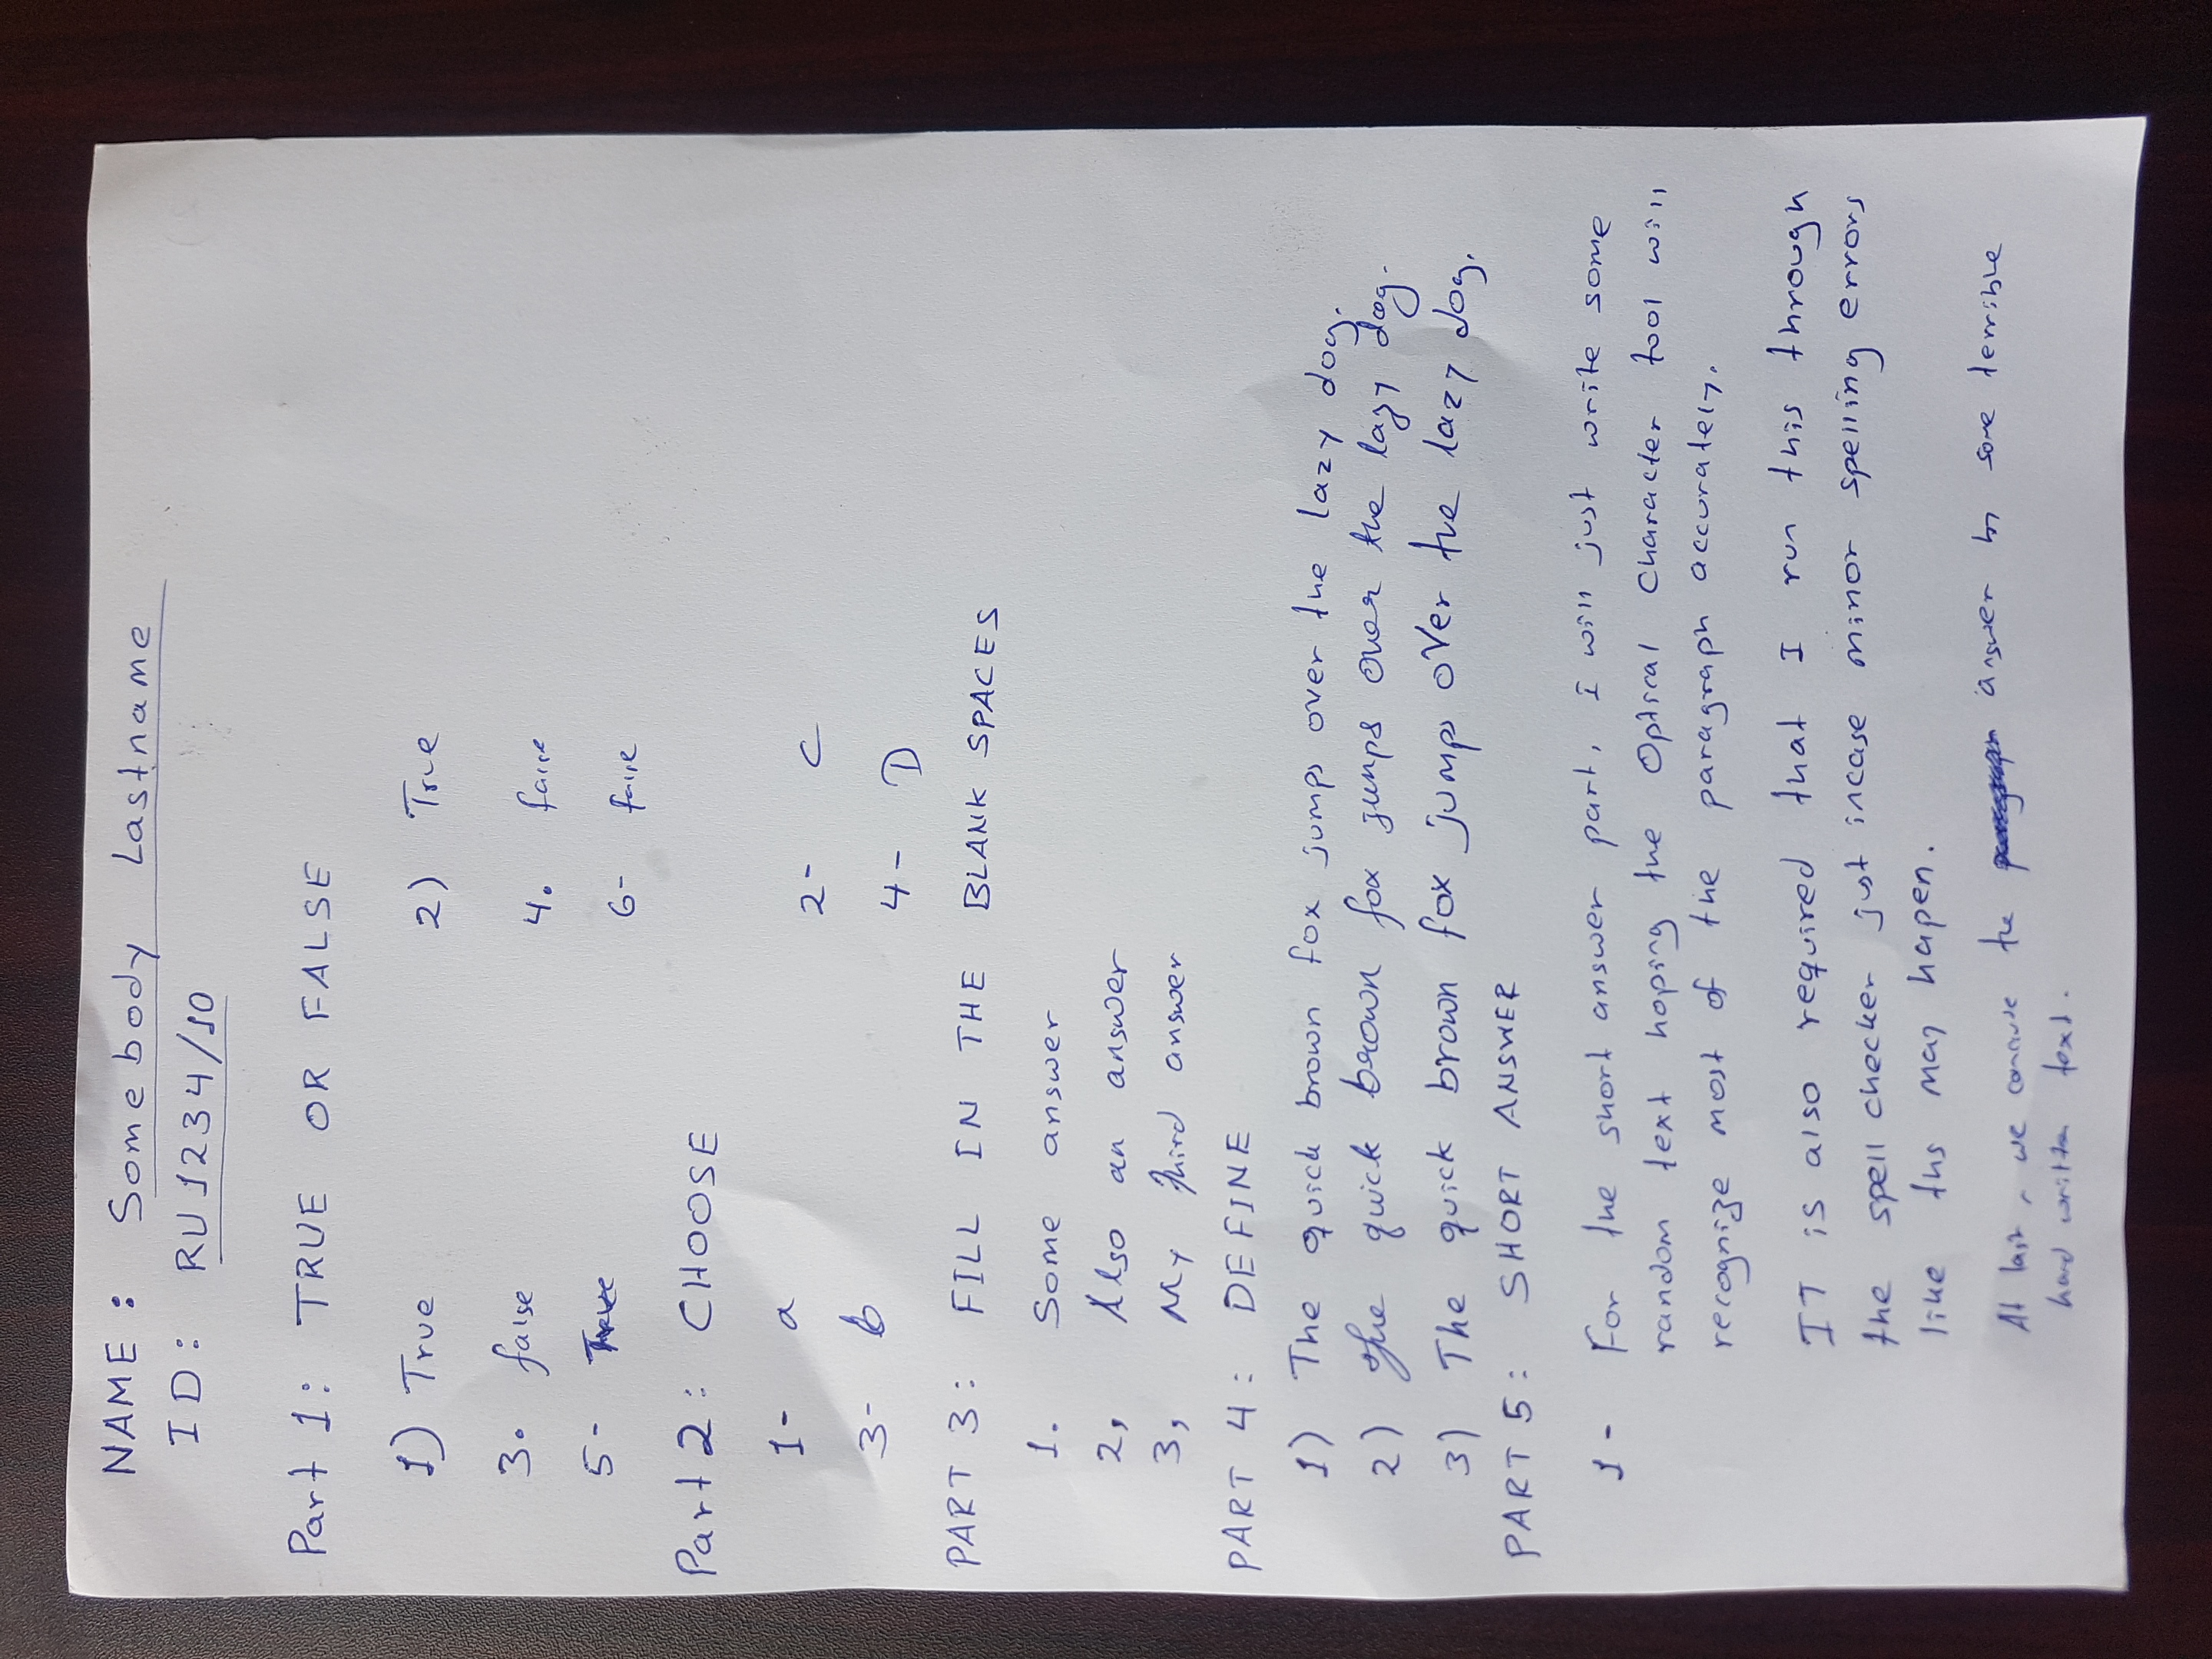 NAME : Somebody Lastname
ID: RU1234/10
Part 1: TRUE OR FALSE
1) True 2) True
3. false 4. false
5- True 6- false
Part 2: CHOOSE
1- a 2- C
3- b 4- D
PART 3: FILL IN THE BLANK SPACES
1. Some answer
2, Also an answer
3, My third answer
PART 4: DEFINE
1) The quick brown fox jumps over the lazy dog.
2) The quick brown fox jumps over the lazy dog.
3) The quick brown fox jumps over the lazy dog.
PART 5: SHORT ANSWER
1- For the short answer part, I will just write some
random text hoping the Optical Character tool will
recognize most of the paragraph accurately.
IT is also required that I run this through
the spell checker just incase minor spelling errors
like ths may hapen.
At last, we conclude the answer by some terrible
hand written text.